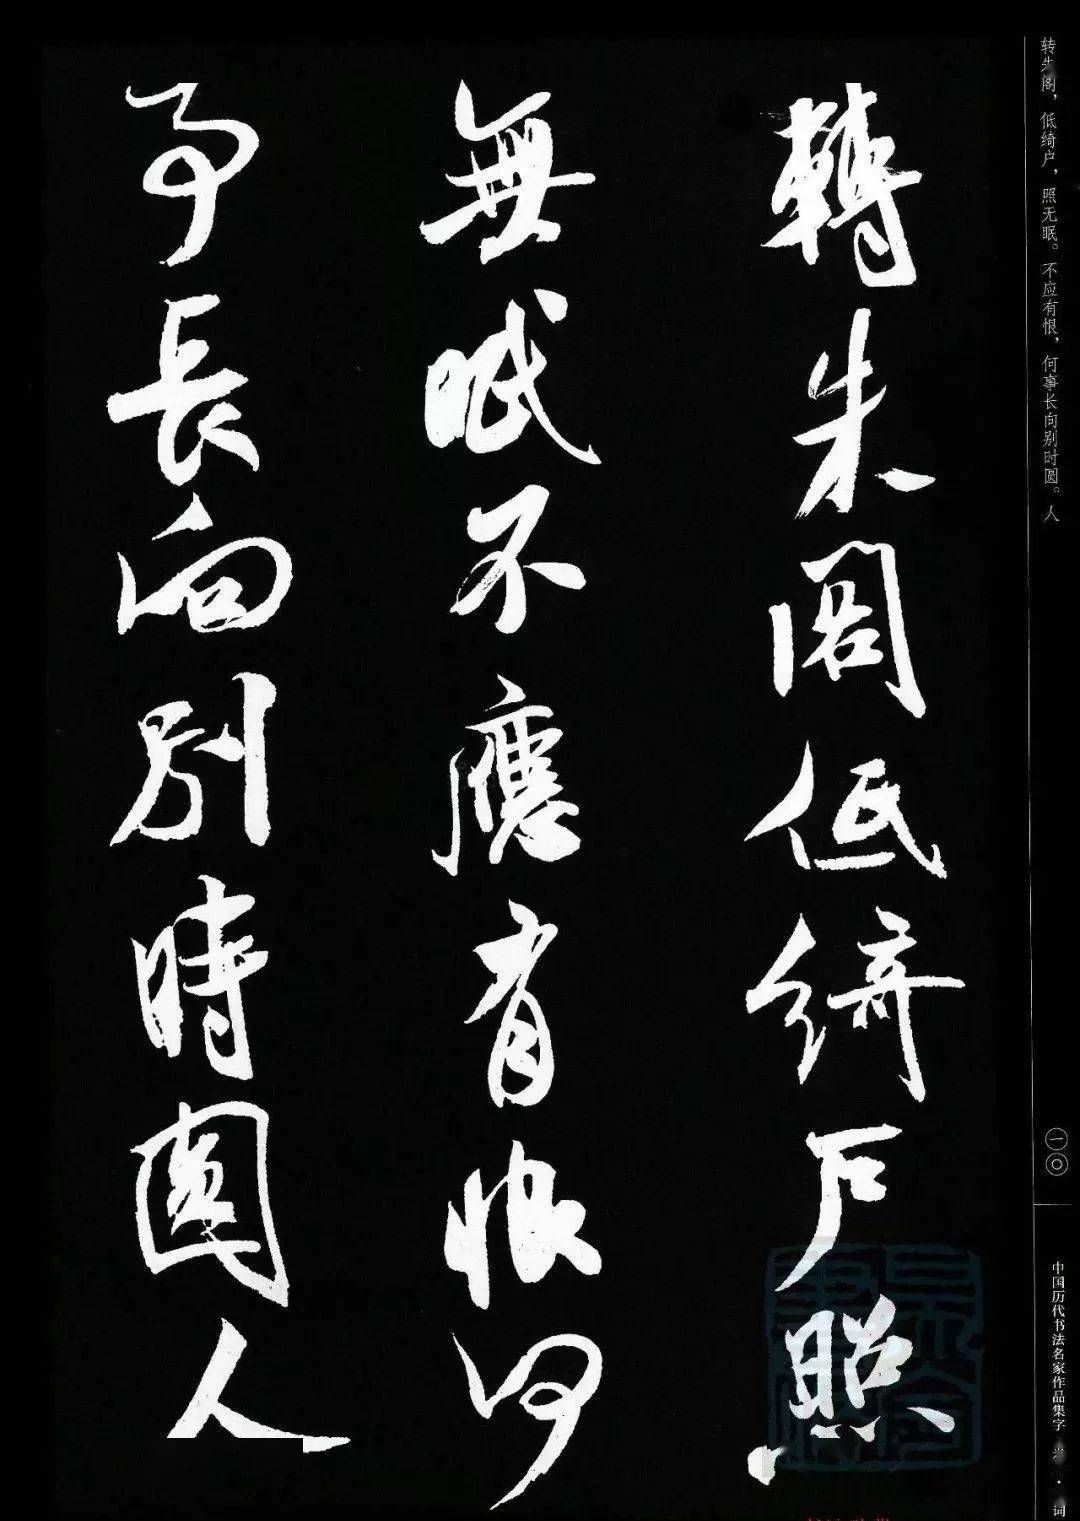 轉朱阁低綺户照
無眠不應有恨何
事長向别時圓人
转朱阁，低绮户，照无眠。不应有恨，何事长向别时圆。人
一〇
中国历代书法名家作品集字
词